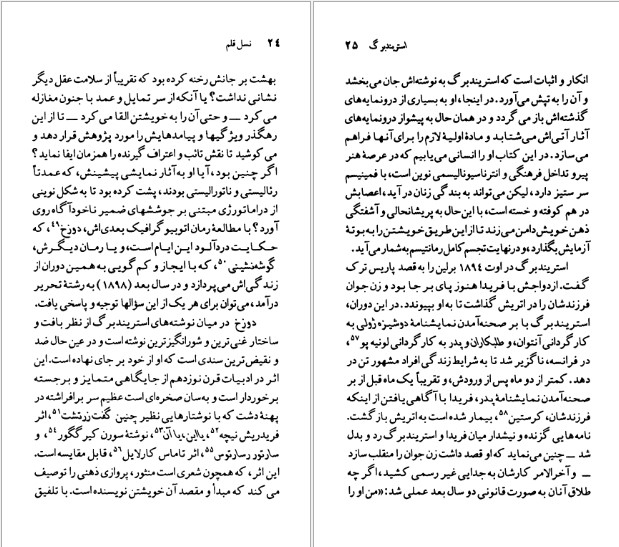 ۲۴ نسل قلم
بهشت بر جانش رخنه کرده بود که تقریباً از سلامت عقل دیگر
نشانی نداشت؟ یا آنکه از سر تمایل و عمد با جنون مغازله
می‌کرد ــ و حتی آن را به خویشتن القا می‌کرد ــ تا از این
رهگذر ویژگیها و پیامدهایش را مورد پژوهش قرار دهد و
می‌کوشید تا نقش تائب و اعتراف گیرنده را همزمان ایفا نماید؟
اگر چنین بود، آیا او به آثار نمایشی پیشینش، که عمدتاً
رئالیستی و ناتورالیستی بودند، پشت کرده بود تا به شکل نوینی
از دراماتورژی مبتنی بر جوششهای ضمیر ناخودآگاه روی
آورد؟ با مطالعهٔ رمان اتوبیوگرافیک بعدی‌اش، دوزخ۴۹، که
حکایت دردآلود این ایام است، و یا رمان دیگرش،
گوشه‌نشینی۵۰، که با ایجاز و کم گویی به همین دوران از
زندگی‌اش می‌پردازد و در سال بعد (۱۸۹۸) به رشتهٔ تحریر
درآمد، می‌توان برای هر یک از این سؤالها توجیه و پاسخی یافت.
دوزخ در میان نوشته‌های استریندبرگ از نظر بافت و
ساختار غنی‌ترین و شورانگیزترین نوشته است و در عین حال ضد
و نقیض‌ترین سندی است که او از خود بر جای نهاده است. این
اثر در ادبیات قرن نوزدهم از جایگاهی متمایز و برجسته
برخوردار است و به‌سان صخره‌ای است عظیم سر برافراشته در
پهنهٔ دشت که با نوشتارهایی نظیر چنین گفت زرتشت۵۱، اثر
فریدریش نیچه۵۲، یا این، یا آن۵۳، نوشتهٔ سورن کیر کگور۵۴، و
سارتور رسارتوس۵۵، اثر تاماس کارلایل۵۶، قابل مقایسه است.
این اثر، که همچون شعری است منثور، پروازی ذهنی را توصیف
می کند که مبدأ و مقصد آن خویشتن نویسنده است. با تلفیق
استریندبرگ ۲۵
انکار و اثبات است که استریندبرگ به نوشته‌اش جان می‌بخشد
و آن را به تپش می‌آورد. در اینجا، او به بسیاری از درونمایه‌های
گذشته‌اش باز می گردد و در همان حال به پیشواز درونمایه‌های
آثار آتی‌اش می‌شتابد و مادهٔ اولیهٔ لازم را برای آنها فراهم
می‌سازد. در این کتاب او را انسانی می‌یابیم که در عرصهٔ هنر
پیرو تداخل فرهنگی و انترناسیونالیسمی نوین است، با فمینیسم
سر ستیز دارد، لیکن می‌تواند به بندگی زنان در آید، اعصابش
در هم کوفته و خسته است، با این حال به پریشانحالی و آشفتگی
ذهن خویش دامن می‌زند تا از این طریق خویشتن را به بوتهٔ
آزمایش بگذارد، و در نهایت تجسم کامل رمانتیسم به شمار می‌آید.
استریندبرگ در اوت ۱۸۹۴ برلین را به قصد پاریس ترک
گفت. ازدواجش با فریدا هنوز پای بر جا بود و زن جوان
فرزندشان را در اتریش گذاشت تا به او بپیوندد. در این دوران،
استریندبرگ با بر صحنه‌آمدن نمایشنامهٔ دوشیزه ژولی به
کارگردانی آنتوان، و طلبکاران و پدر به کارگردانی لونیه پو۵۷،
در فرانسه، ناگزیر شد تا به شرایط زندگی افراد مشهور تن در
دهد. کمتر از دو ماه پس از ورودش، و تقریباً یک ماه قبل از بر
صحنه‌آمدن نمایشنامهٔ پدر، فریدا با آگاهی یافتن از اینکه
فرزندشان، کرستین۵۸، بیمار شده است به اتریش باز گشت.
نامه‌هایی گزنده و نیشدار میان فریدا و استریندبرگ رد و بدل
شد ــ چنین می‌نماید که او قصد داشت زن جوان را منقلب سازد
ــ و آخرالامر کارشان به جدایی غیر رسمی کشید، اگر چه
طلاق آنان به صورت قانونی دو سال بعد عملی شد: «من او را